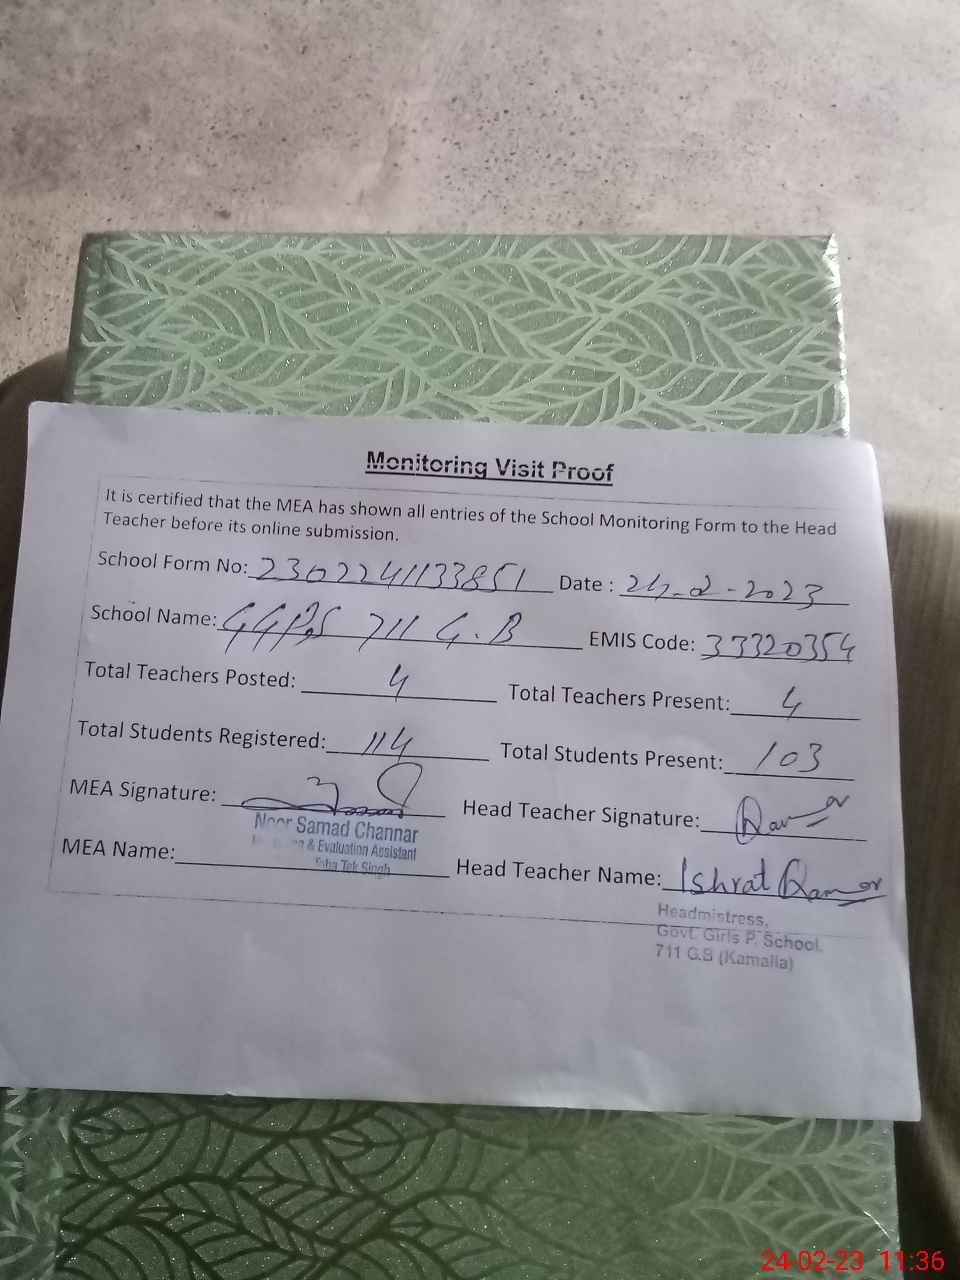 Monitoring Visit Proof
It is certified that the MEA has shown all entries of the School Monitoring Form to the Head
Teacher before its online submission.
School Form No: 2302241133851 Date : 24-2-2023
School Name: GGPS 711 G.B EMIS Code: 33320354
Total Teachers Posted: 4 Total Teachers Present: 4
Total Students Registered: 114 Total Students Present: 103
MEA Signature: Head Teacher Signature:
Noor Samad Channar
& Evaluation Assistant
Toba Tek Singh
MEA Name: Head Teacher Name: Ishrat
Headmistress,
Govt. Girls P. School.
711 G.B (Kamalia)
24-02-23 11:36